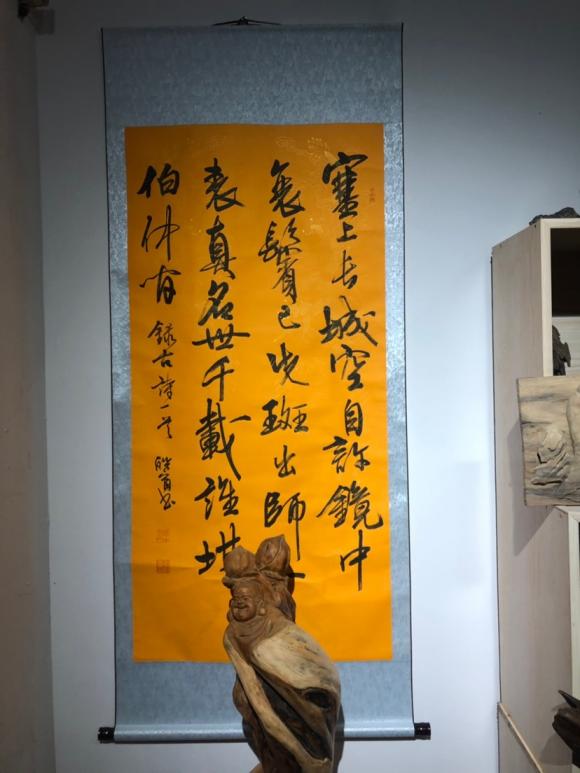 塞上长城空自許鏡中
衰鬢已先斑出師一
表真名世千載誰堪
伯仲间
錄古詩一首 书